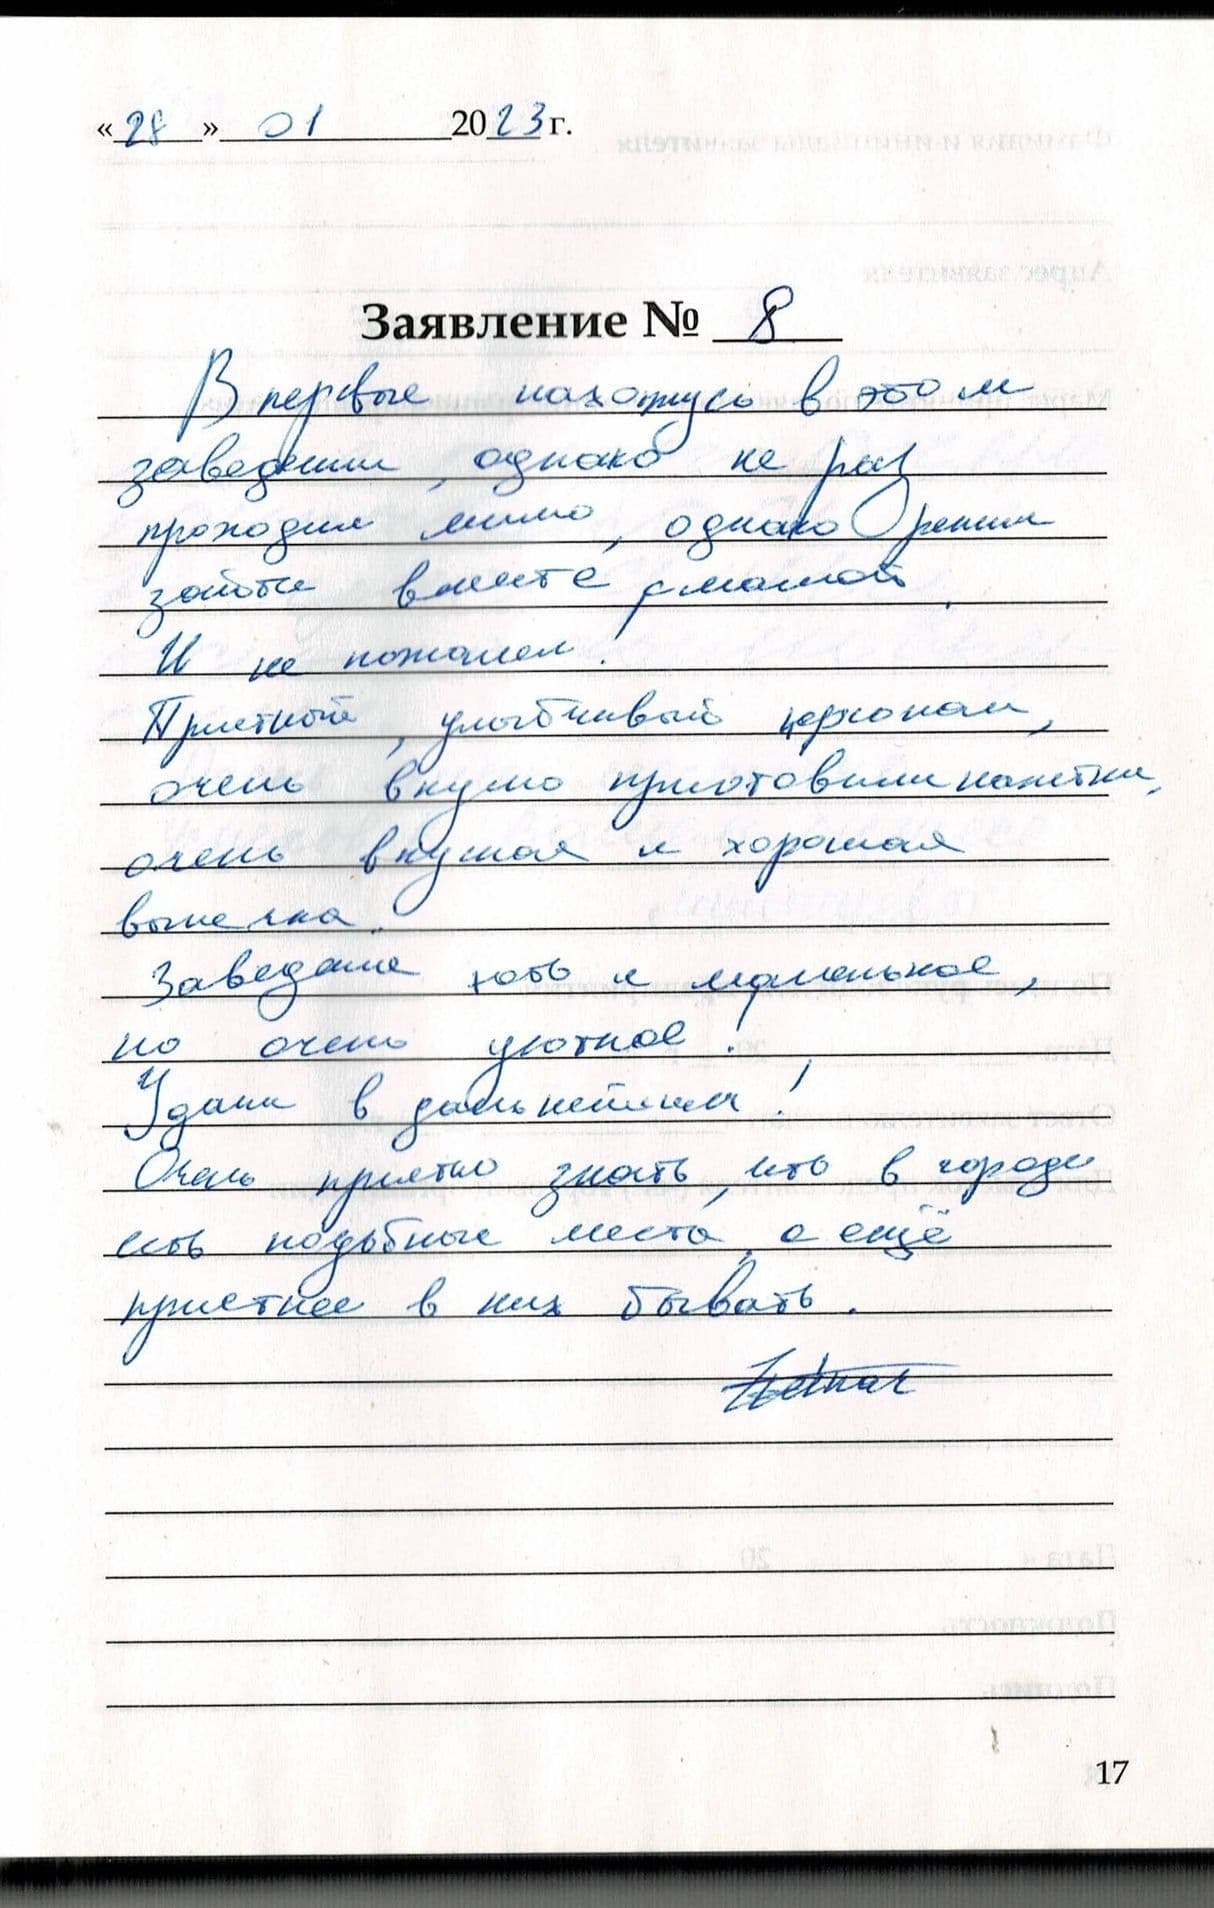 «28» 01 2023 г.
Заявление № 8
Впервые нахожусь в этом
заведении, однако не раз
проходил мимо, однако решил
зайти вместе с мамой.
И не пожалел!
Приятный, улыбчивый персонал,
очень вкусно приготовили напитки,
очень вкусная и хорошая
выпечка.
Заведение хоть и маленькое,
но очень уютное!
Удачи в дальнейшем!
Очень приятно знать, что в городе
есть подобные места, а ещё
приятнее в них бывать.
17